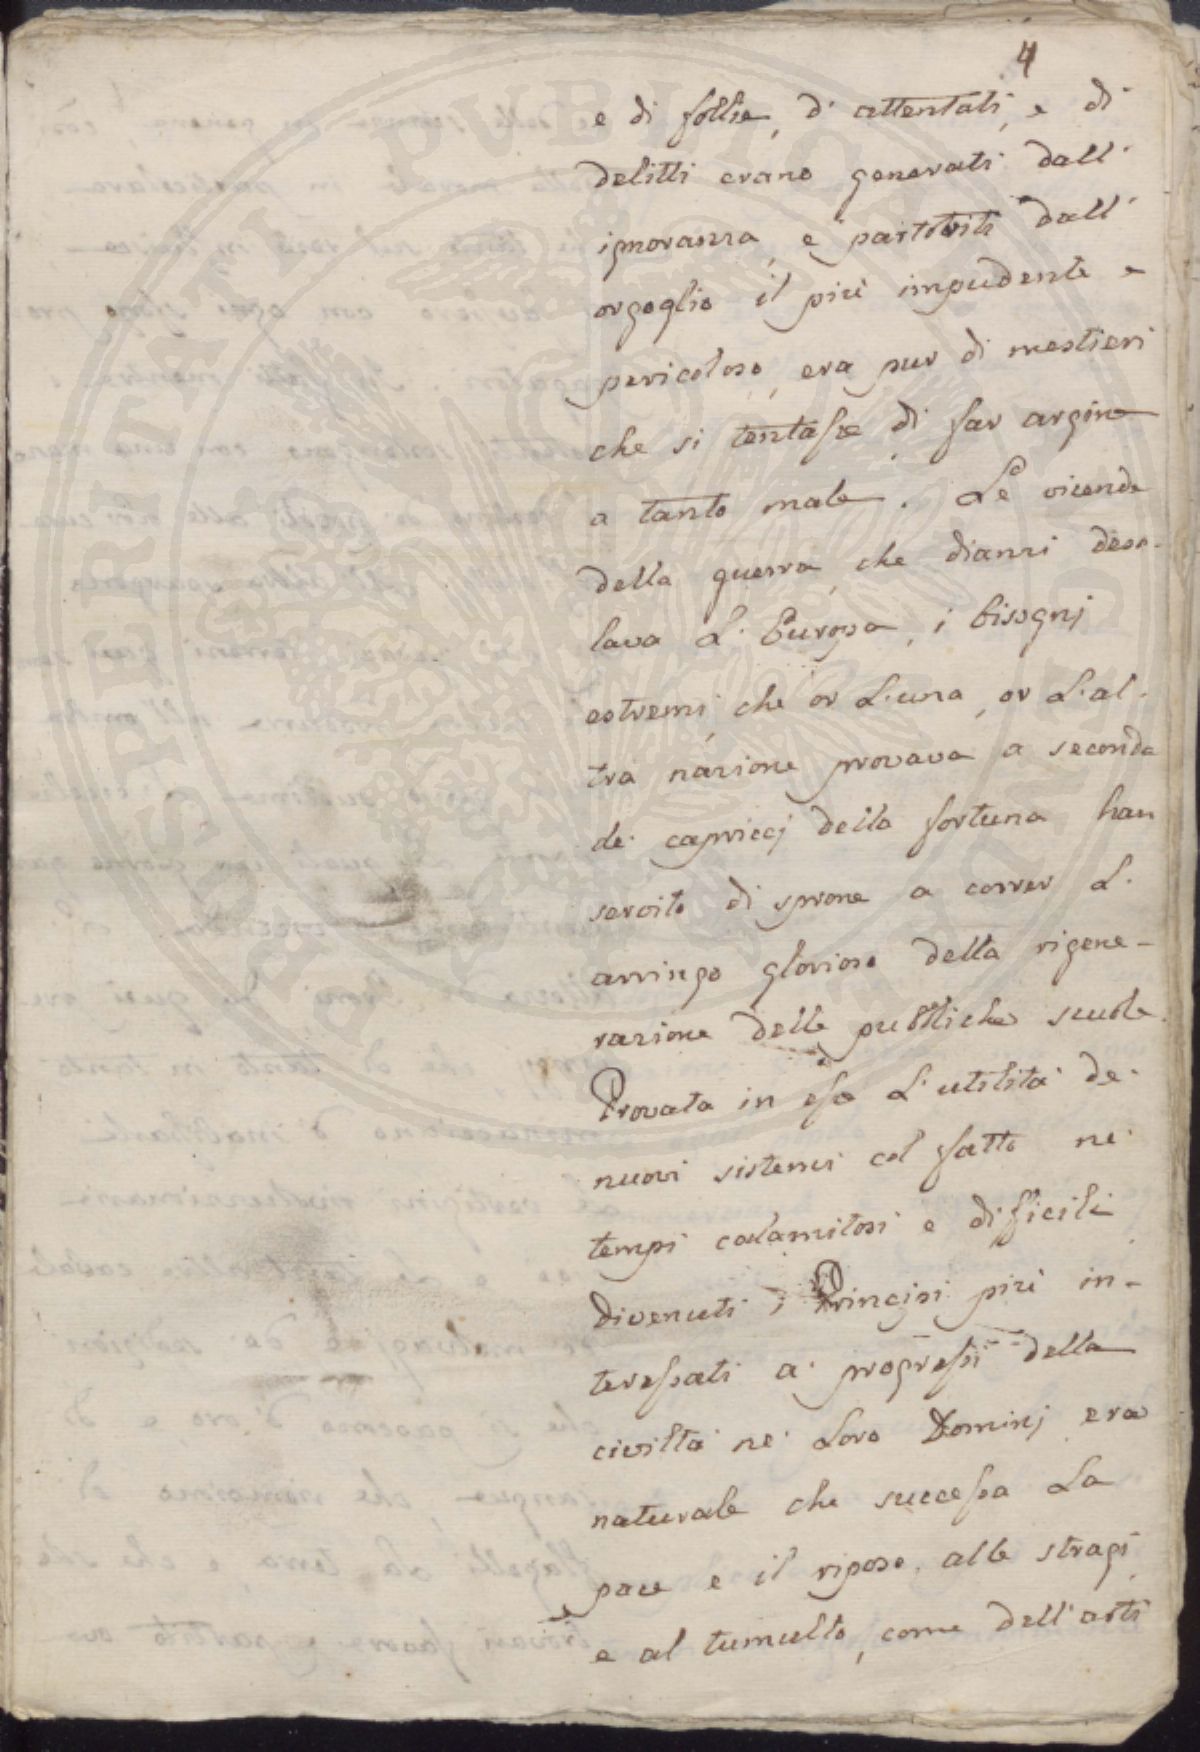 4
e di follie, d'attentati, e di
delitti erano generati dall'
ignoranza, e partoriti dall'
orgoglio il più impudente e
pericoloso, era pur di mestieri
che si tentasse di far argine
a tanto male. Le vicende
della guerra che dianzi deso-
lava L'Europa, i bisognj
estremi, che or L'una, or L'al-
tra nazione provava a seconda
de' capriccj della fortuna han
servito di sprone a correr L'
arringo glorioso della rigene-
razione delle pubbliche scuole.
Provata in essa L'utilità de'
nuovi sistemi col fatto ne'
tempi calamitosi e difficili
divenuti i Principi più in-
teressati a' progressi della
civiltà ne' Loro Dominj era
naturale che successa La
pace e il riposo alle stragi
e al tumulto, come dell'arti